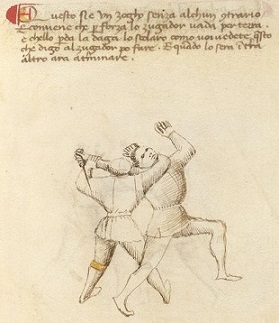 Questo si e un zogho senza alchun contrario
E convene che per forza lo zugador vada per terra
e ch'ello perda la daga lo scolaro como voi vedete, questo
che digo al zugador po fare. E quando lo sera in terra
altro ara a terminare.